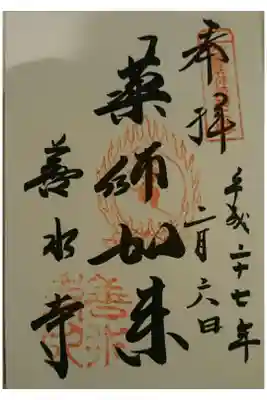 奉拝
平成二十七年
二月六日
薬師如来
善水寺